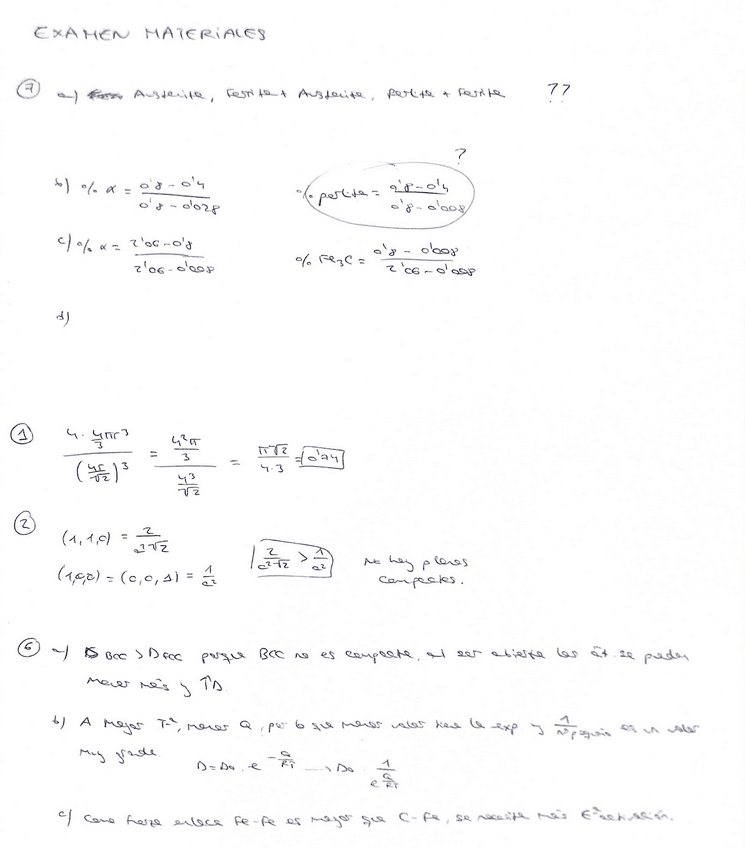 EXAMEN MATERIALES
7 a) Austenita, Ferrita + Austenita, perlita + Ferrita ??
?
b) % α = 0'8 - 0'4 / 0'8 - 0'028 % perlita = 0'8 - 0'4 / 0'8 - 0'008
c) % α = 2'06 - 0'8 / 2'06 - 0'008 % Fe₃C = 0'8 - 0'008 / 2'06 - 0'008
d)
1 4 · 4πr³/3 / (4r/√2)³ = 4²π/3 / 4³/√2 = π√2 / 4·3 = 0'74
2 (1,1,0) = 2 / a²√2
2 / a²√2 > 1 / a² No hay planos
(1,0,0) = (0,0,1) = 1 / a² compactos.
6 a) D BCC > D FCC porque BCC no es compacta, al ser abierta los át. se pueden
mover más y ↑D.
b) A mayor Tª, menor Q, por lo que menor valor tiene la exp y 1 / nº pequeño es un valor
muy grande.
D = D₀ · e^(-Q/RT) → D₀ · 1 / e^(Q/RT)
c) Como fuerza enlace Fe-Fe es mayor que C-Fe, se necesita más Eª activación.